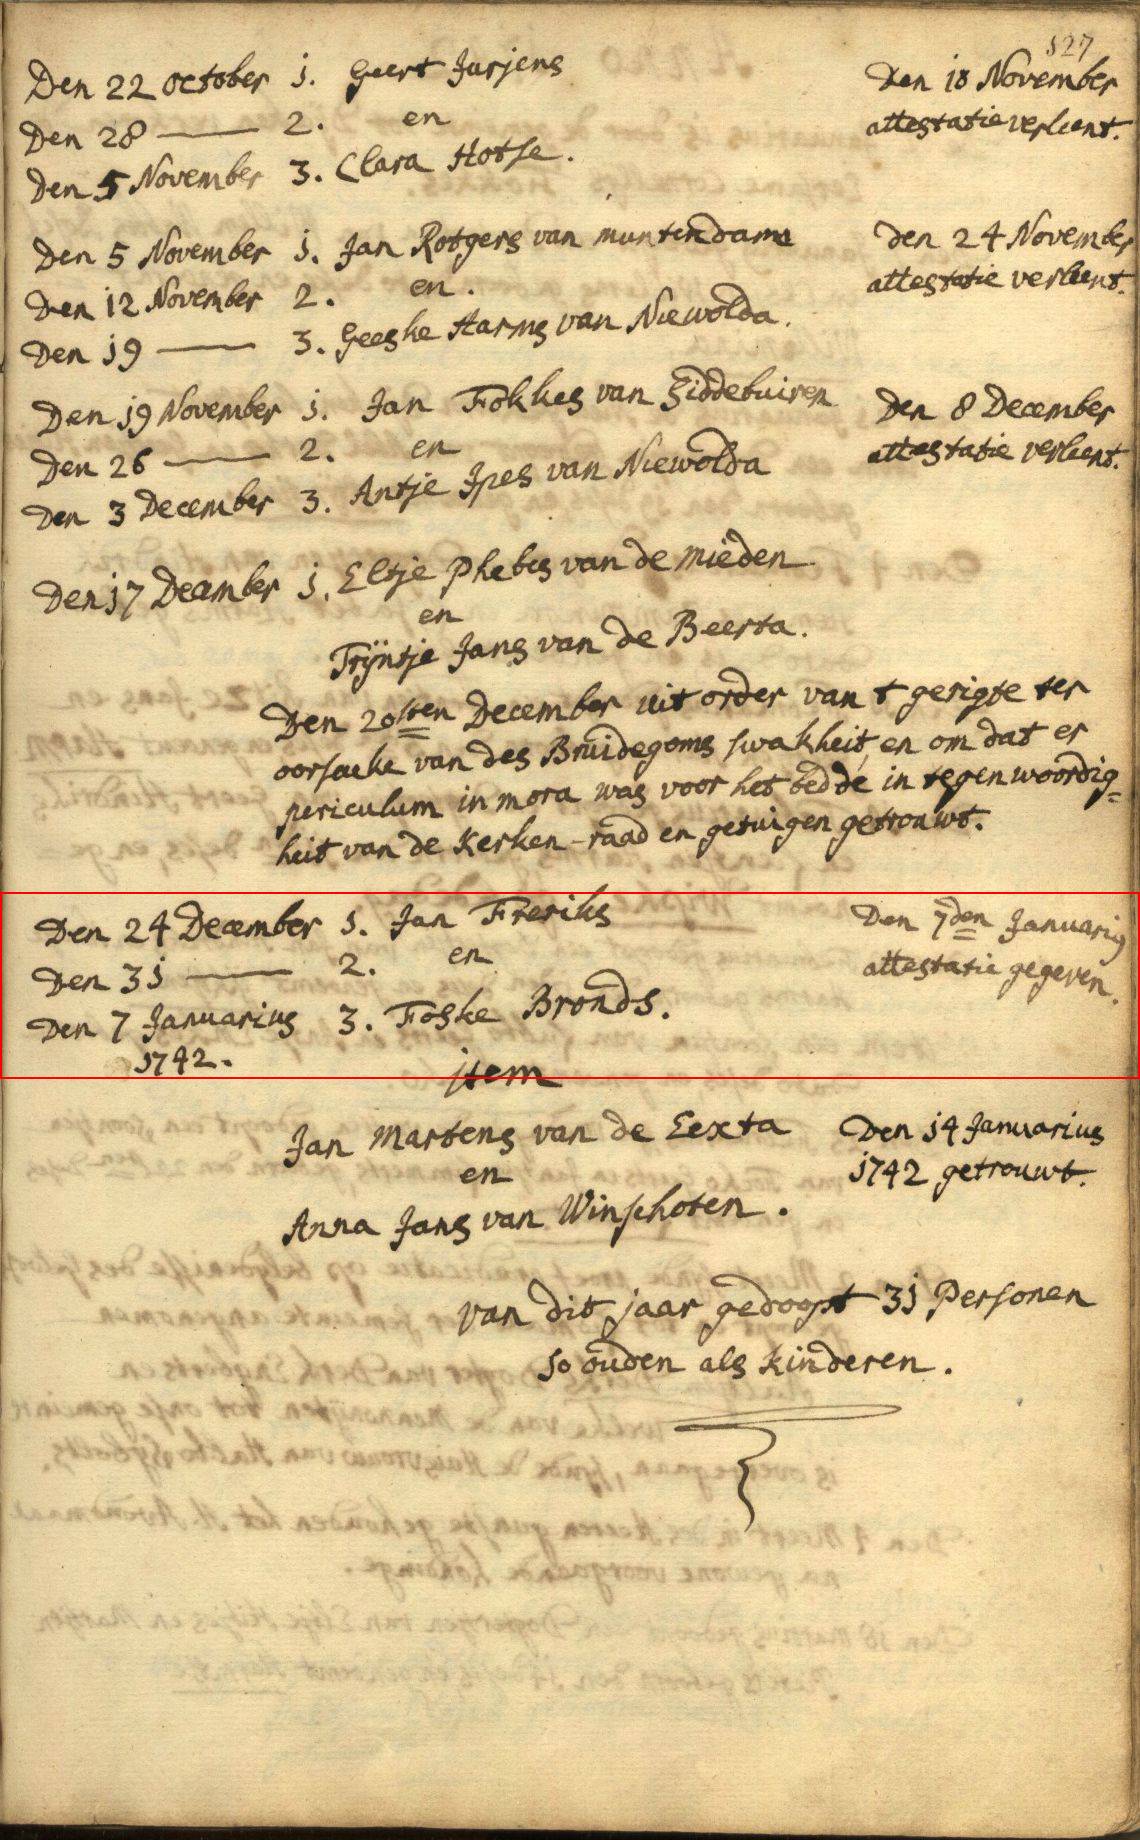 127
Den 22 october 1. Geert Jurjens
Den 28 —— 2. en
Den 5 November 3. Clara Hotse.
Den 18 November
attestatie verleent.
Den 5 November 1. Jan Rotgers van muntendam
Den 12 November 2. en.
Den 19 —— 3. Geeske Harms van Niewolda.
Den 24 November
attestatie verleent.
Den 19 November 1. Jan Fokkes van Siddebuiren
Den 26 —— 2. en
Den 3 December 3. Antje Ipes van Niewolda
Den 8 December
attestatie verleent.
Den 17 December 1. Eltje Phebes van de mieden
en
Trijntje Jans van de Beerta.
Den 20sten December uit order van t gerigte ter
oorsaeke van des Bruidegoms swakheit, en om dat er
periculum in mora was voor het bedde in tegenwoordig=
heit van de Kerken-raad en getuigen getrouwt.
Den 24 December 1. Jan Freriks
Den 31 —— 2. en
Den 7 Januarius 3. Foske Bronds.
1742.
Den 7den Januarig
attestatie gegeven.
item
Jan Martens van de Eexta
en
Anna Jans van Winschoten.
Den 14 Januarius
1742 getrouwt.
van dit jaar gedoopt 31 Personen
so ouden als kinderen.